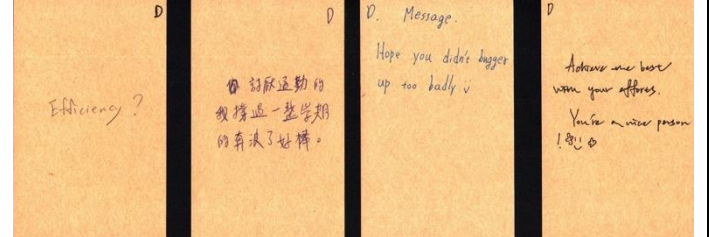 D
Efficiency?
D
討厭通勤的
我撐過一整学期
的奔波了好棒。
D. Message.
Hope you didn't bugger
up too badly
D
Achieve me best
with your efforts.
You're a nice person
!